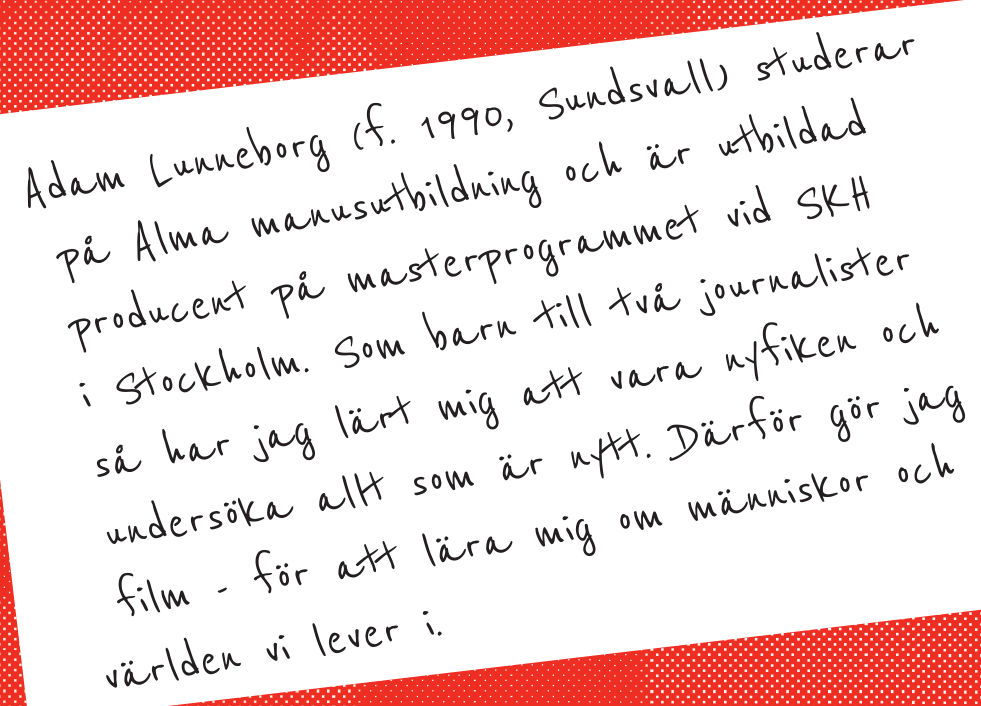 Adam Lunneborg (f. 1990, Sundsvall) studerar
på Alma manusutbildning och är utbildad
producent på masterprogrammet vid SKH
i Stockholm. Som barn till två journalister
så har jag lärt mig att vara nyfiken och
undersöka allt som är nytt. Därför gör jag
film - för att lära mig om människor och
världen vi lever i.